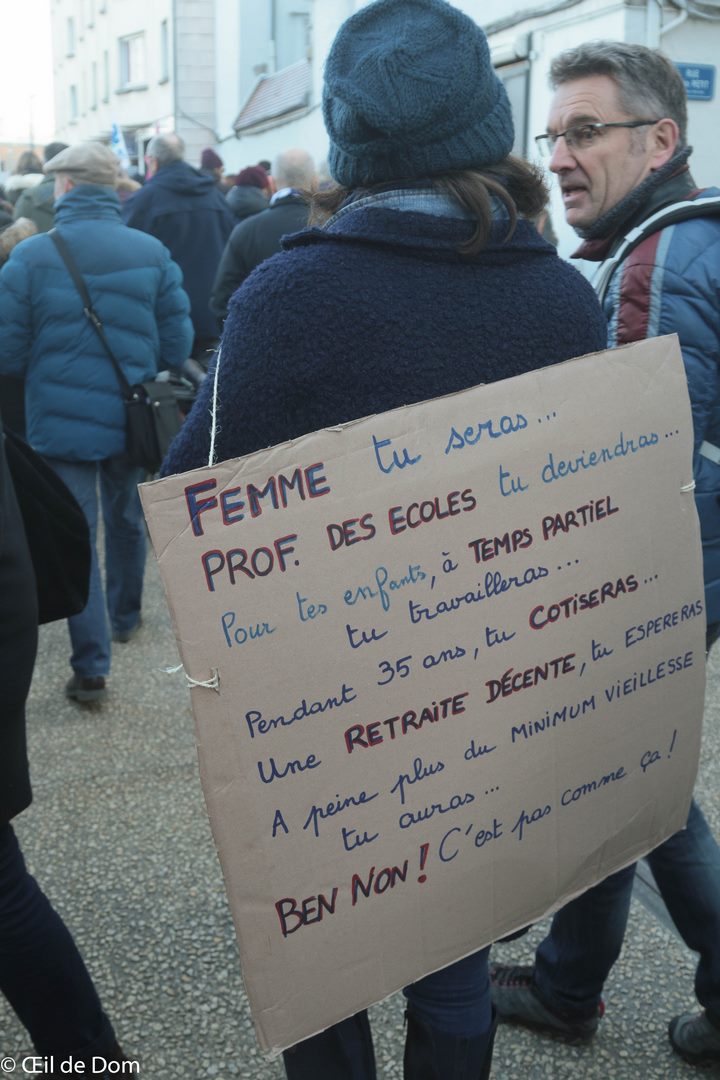 RUE
PETIT
FEMME tu seras...
PROF. DES ECOLES tu deviendras...
Pour tes enfants, à TEMPS PARTIEL
tu travailleras...
Pendant 35 ans, tu COTISERAS...
Une RETRAITE DÉCENTE, tu ESPERERAS
A peine plus du MINIMUM VIEILLESSE
tu auras...
BEN NON! C'est pas comme ça!
© Œil de Dom